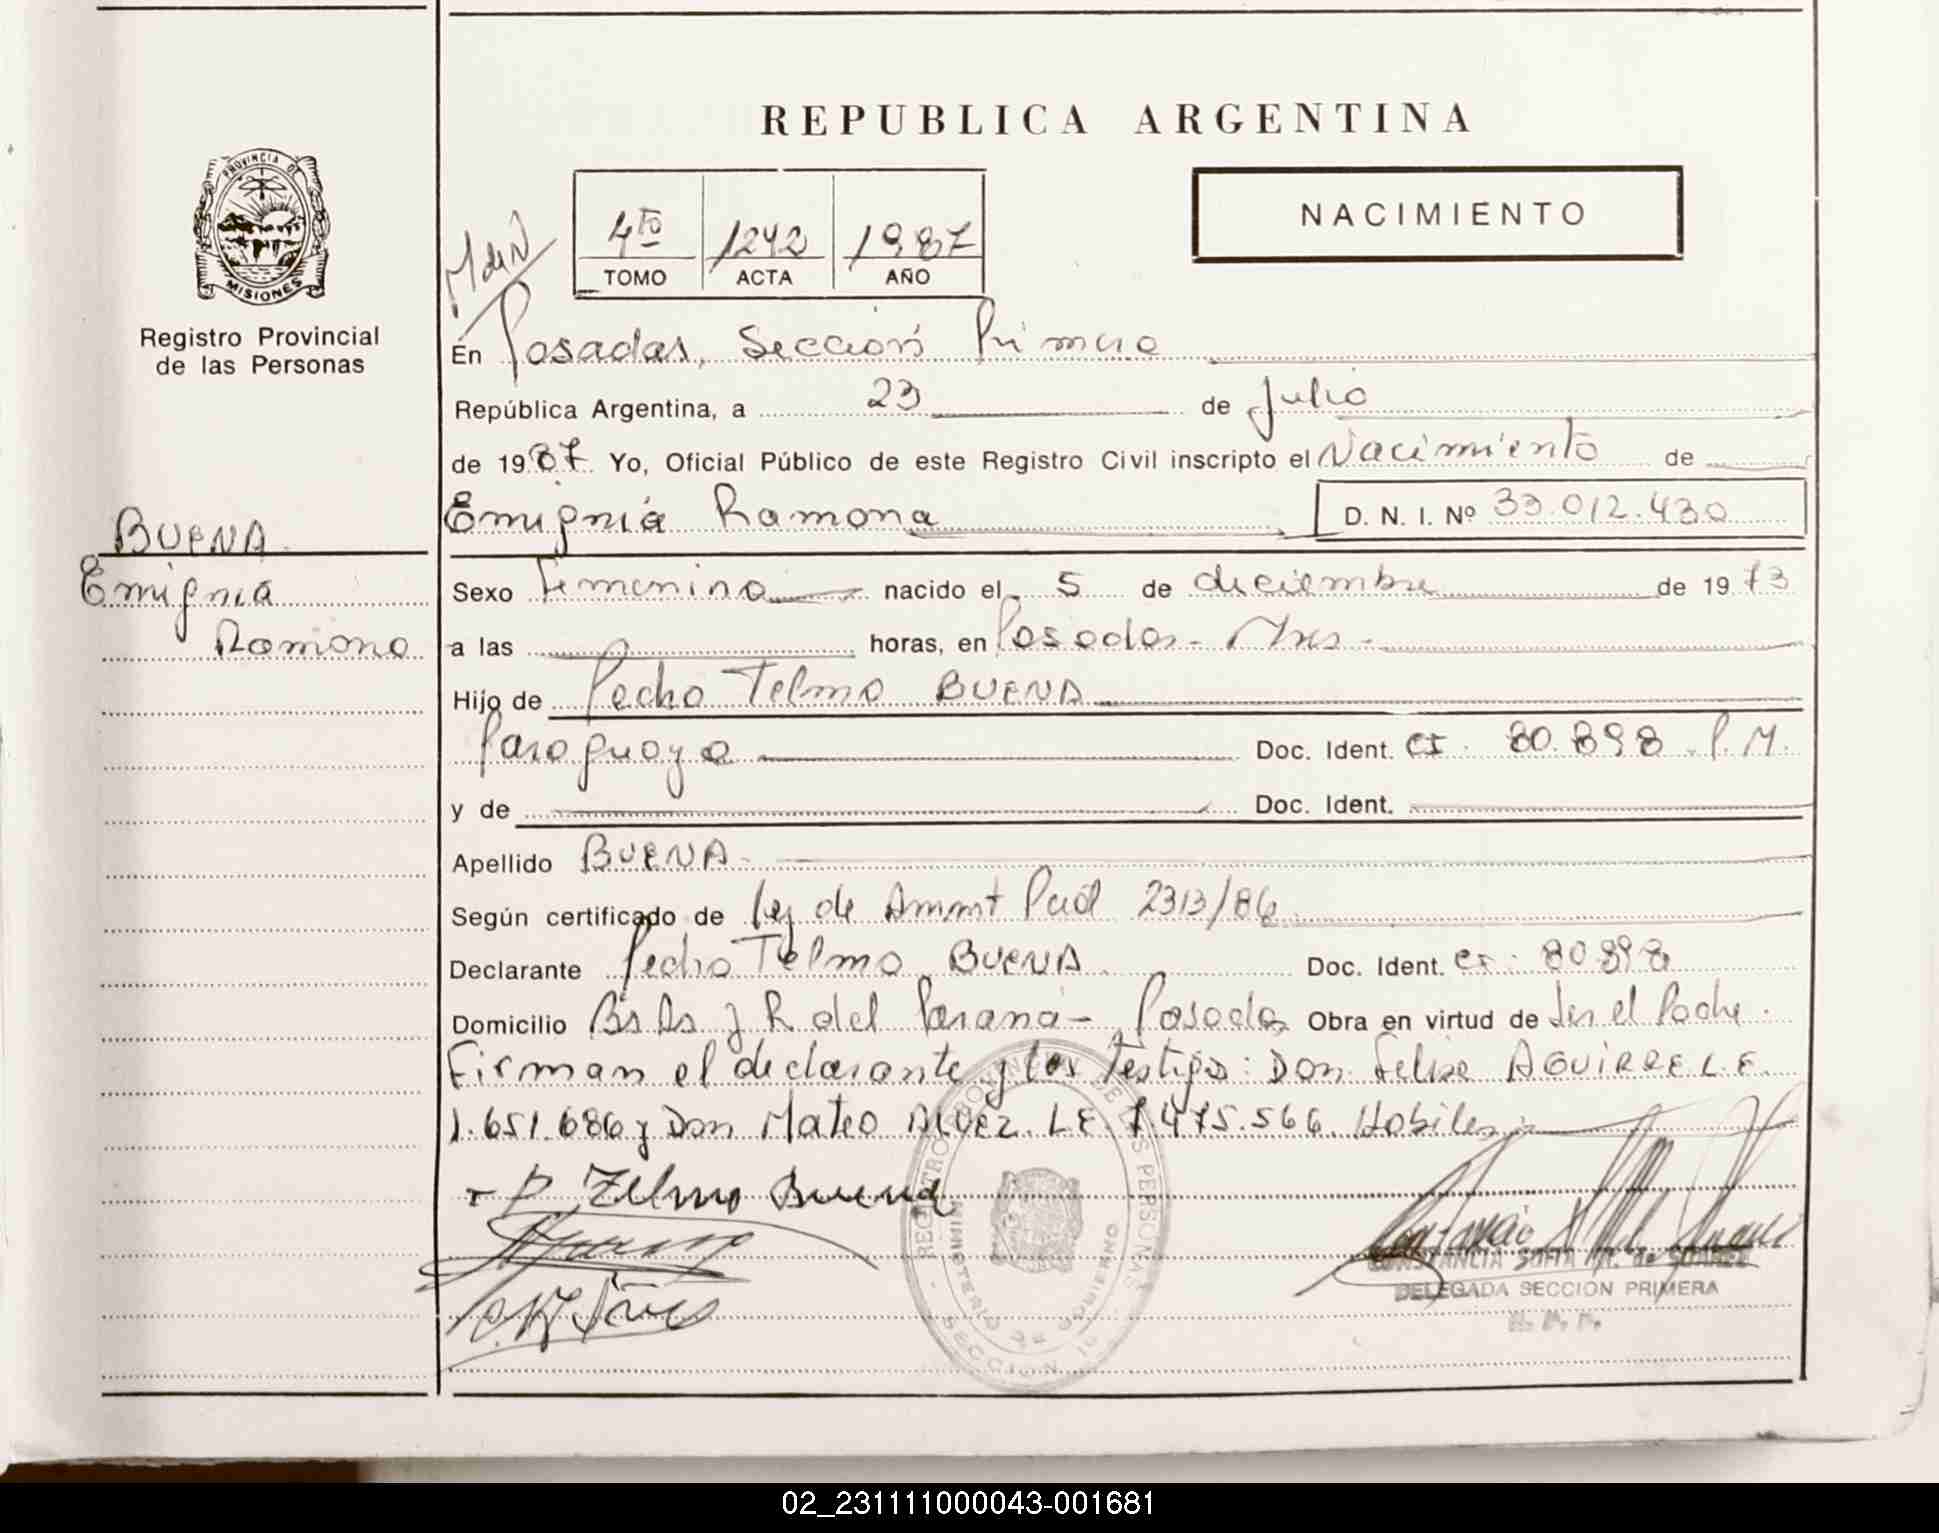 REPUBLICA ARGENTINA
NACIMIENTO
PROVINCIA DE
MISIONES
Registro Provincial
de las Personas
4to 1242 1987
TOMO ACTA AÑO
En Posadas, Sección Primera
República Argentina, a 23 de Julio
de 1987 Yo, Oficial Público de este Registro Civil inscripto el Nacimiento de
Emignia Ramona D. N. I. Nº 33.012.430
BUENA
Emignia
Ramona
Sexo Femenino nacido el 5 de diciembre de 1973
a las horas, en Posadas - Mnes -
Hijo de Pedro Telmo BUENA
Paraguaya Doc. Ident. CI. 80.898 P. M.
y de Doc. Ident.
Apellido BUENA
Según certificado de Ley de Ammt Pcial 2313/86
Declarante Pedro Telmo BUENA Doc. Ident. CI. 80.898
Domicilio Bs As y R del Paraná - Posadas Obra en virtud de ser el Padre.
Firman el declarante y los Testigos: Don Felise AGUIRRE L.E.
1.651.686 y Don Mateo ALVEZ. L.E. 7.475.566 Habiles.
P Telmo Buena
REGISTRO PROVINCIAL DE LAS PERSONAS
MINISTERIO DE GOBIERNO
SECCION 1ª
CONSTANCIA SOFIA M. de SUAREZ
DELEGADA SECCION PRIMERA
R. P. P.
02_231111000043-001681